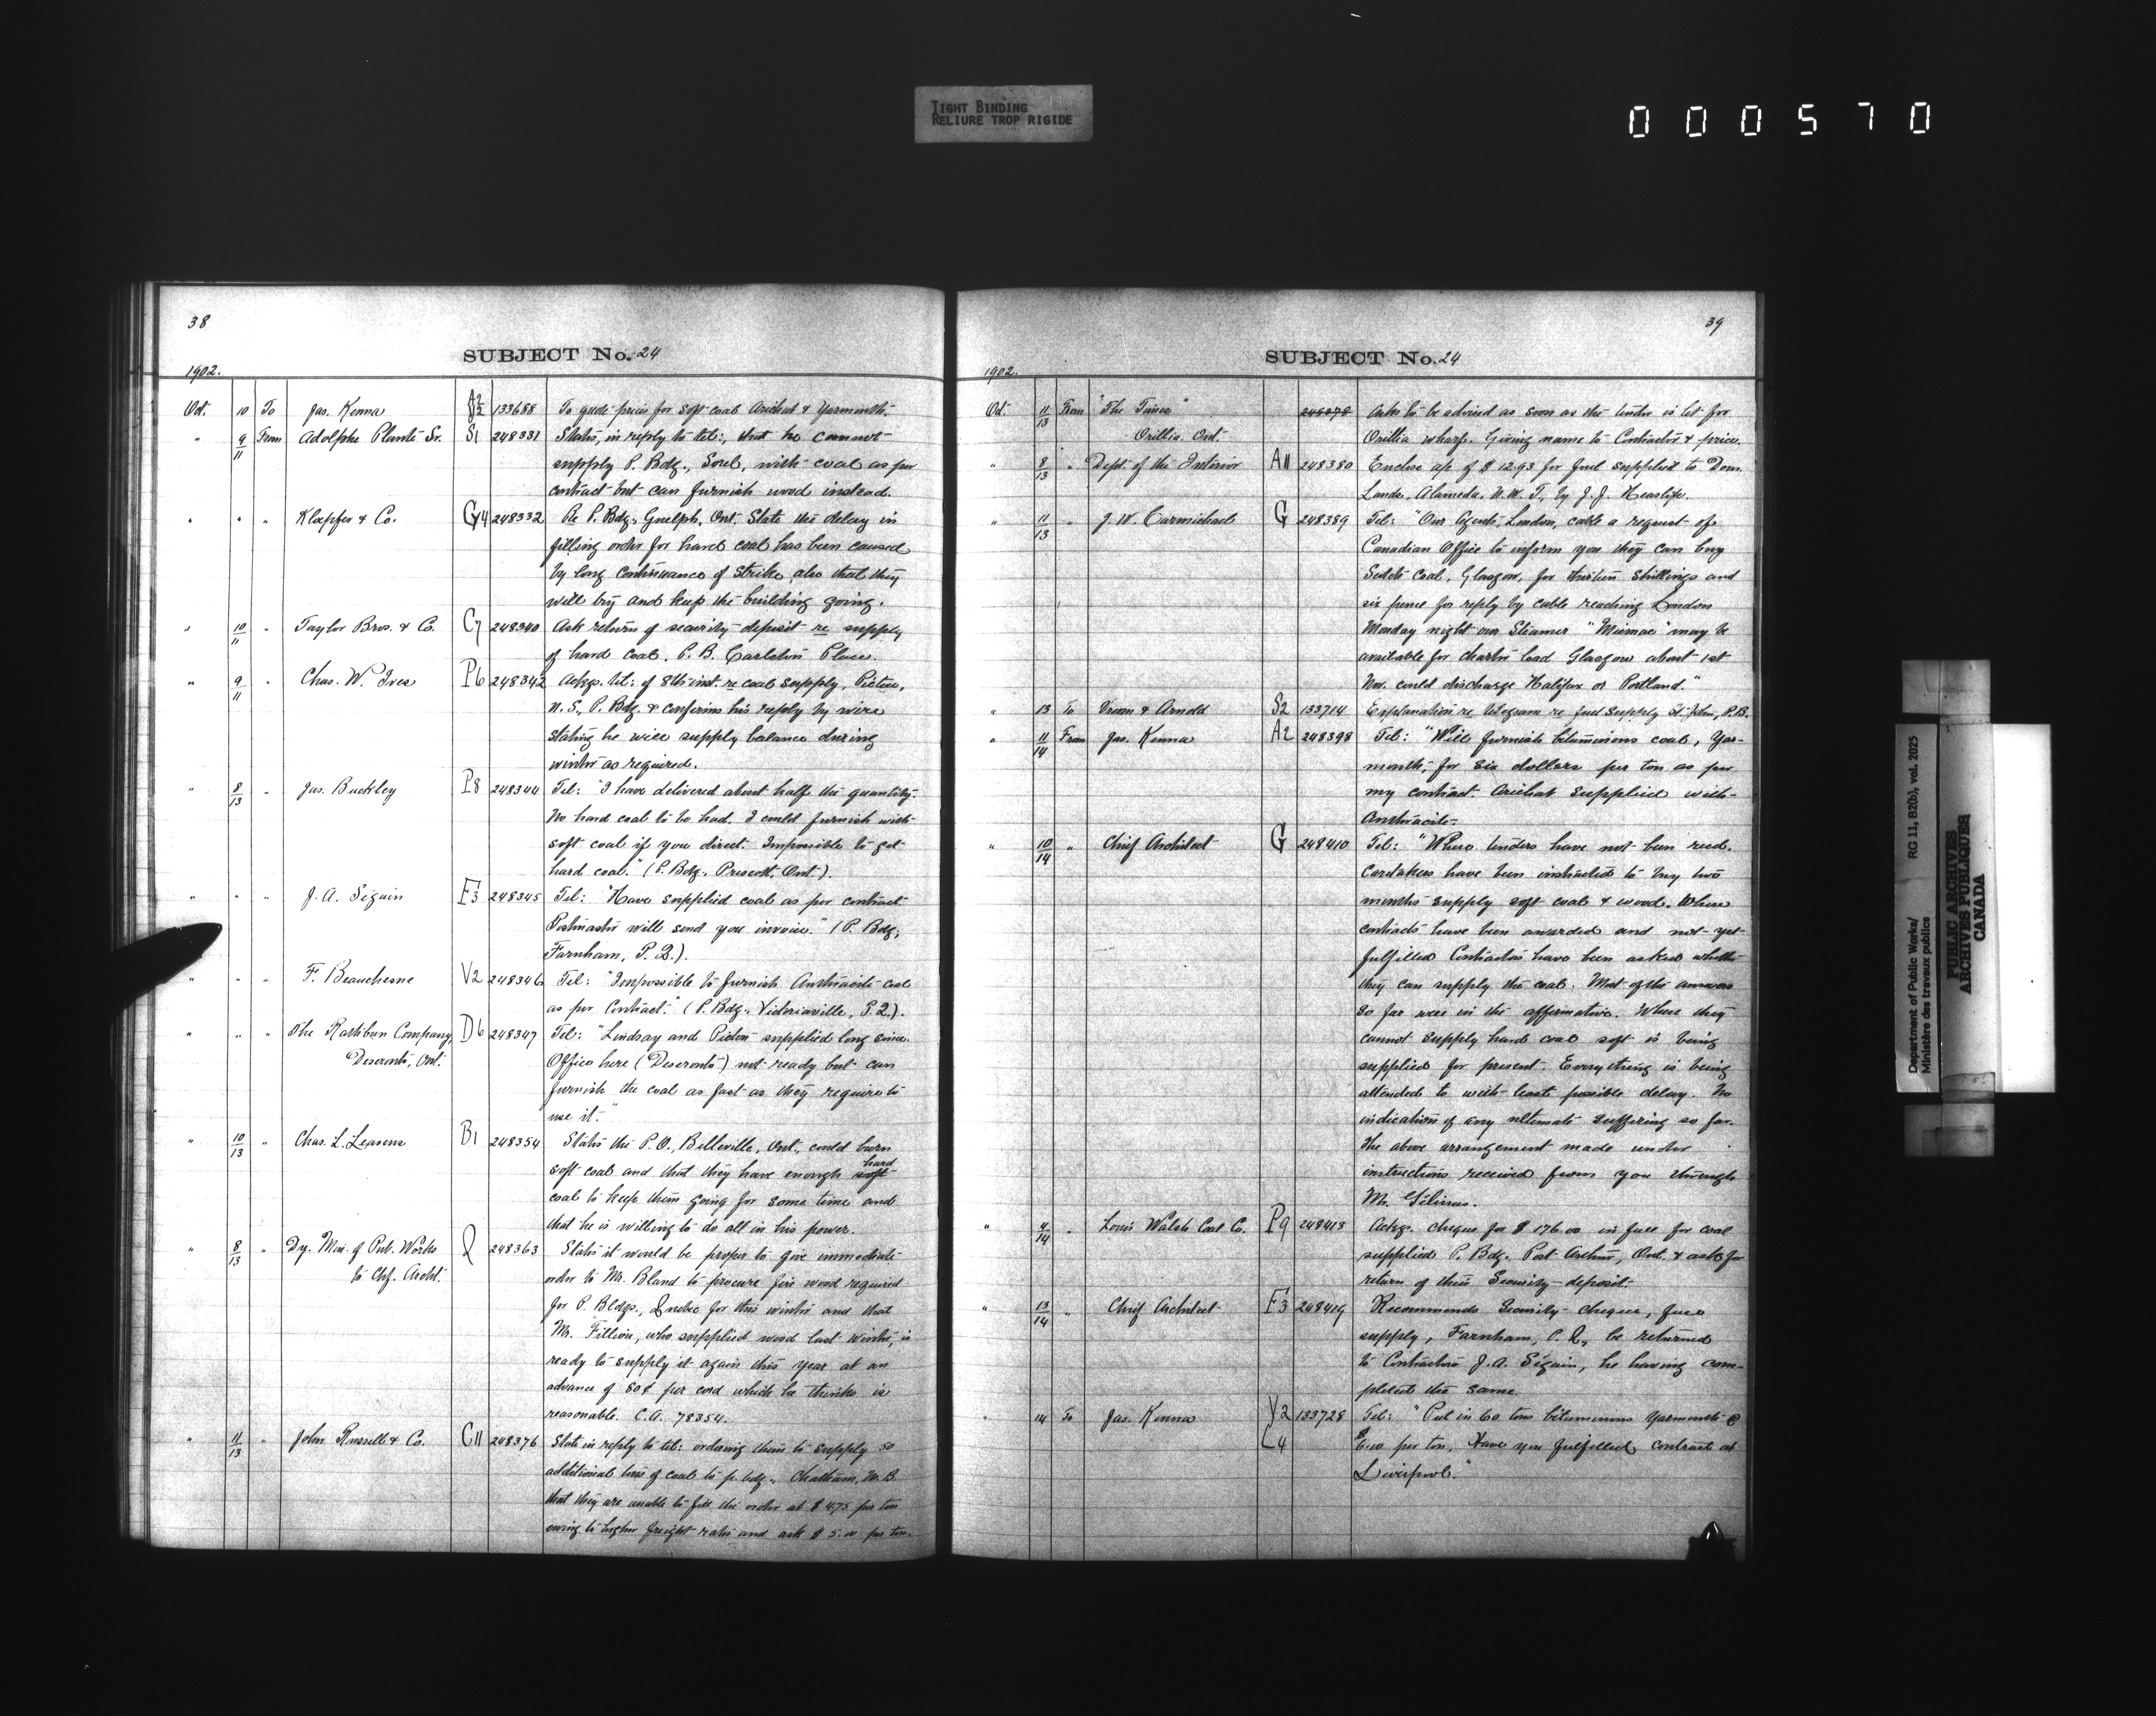 TIGHT BINDING
RELIURE TROP RIGIDE
000570
38
SUBJECT No. 24
1902.
Oct. 10 To Jas. Kenna A2 Y2 133688 To quote price for soft coal Arichat & Yarmouth.
" 9/11 From Adolphe Planté Sr. S1 248331 States, in reply to tel:, that he cannot
supply P. Bdg., Sorel, with coal as per
contract but can furnish wood instead.
" " " Kloepfer & Co. G4 248332 Re P. Bdg., Guelph, Ont. State the delay in
filling order for hard coal has been caused
by long continuance of strike, also that they
will try and keep the building going.
" 10/11 " Taylor Bros. & Co. C7 248340 Ask return of security deposit re supply
of hard coal, P. B. Carleton Place.
" 9/11 " Chas. W. Ives P6 248342 Ackgs. tel: of 8th inst. re coal supply, Pictou,
N. S., P. Bdg. & confirms his reply by wire
stating he will supply balance during
winter as required.
" 8/13 " Jas. Buckley P8 248344 Tel: "I have delivered about half the quantity.
No hard coal to be had. I could furnish with
soft coal if you direct. Impossible to get
hard coal." (P. Bdg., Prescott, Ont.).
" " " J. A. Séguin F3 248345 Tel: "Have supplied coal as per contract.
Postmaster will send you invoice." (P. Bdg.,
Farnham, P. Q.).
" " " F. Beauchesne V2 248346 Tel: "Impossible to furnish Anthracite coal
as per Contract." (P. Bdg., Victoriaville, P. Q.).
" " " The Rathbun Company, D6 248347 Tel: "Lindsay and Picton supplied long since.
Deseronto, Ont. Office here (Deseronto) not ready but can
furnish the coal as fast as they require to
use it."
" 10/13 " Chas. L. B1 248354 States the P. O., Belleville, Ont., could burn
soft coal and that they have enough soft hard
coal to keep them going for some time and
that he is willing to do all in his power.
" 8/13 " Dy. Min. of Pub. Works Q 248363 States it would be proper to give immediate
to Chf. Archt. order to Mr. Bland to procure fire wood required
for P. Bldgs., Quebec for this winter and that
Mr. Fillion, who supplied wood last winter, is
ready to supply it again this year at an
advance of 80¢ per cord which he thinks is
reasonable. C.A. 78354.
" 11/13 " John Russell & Co. C11 248376 State in reply to tel: ordering them to supply 50
additional tons of coal to p. bdg., Chatham, N. B.
that they are unable to fill the order at $4.75 per ton
owing to higher freight rates and ask $5.00 per ton.
39
SUBJECT No. 24
1902.
Oct. 11/13 From "The Times" 248378 Asks to be advised as soon as the tender is let for
Orillia. Ont. Orillia wharf. Giving name to Contractor & price.
" 8/13 " Dept. of the Interior A11 248380 Enclose a/c of $12.93 for fuel supplied to Dom.
Lands, Alameda, N. W. T., by J. J. Heaslip.
" 11/13 " J. W. Carmichael G 248389 Tel: "Our Agents, London, cable a request of
Canadian Office to inform you they can buy
Scotch Coal, Glasgow, for thirteen shillings and
six pence for reply by cable reaching London
Monday night our Steamer "Micmac" may be
available for charter load Glasgow about 1st
Nov. could discharge Halifax or Portland."
" 13 To Vroom & Arnold S2 133714 Explanation re telegram re fuel supply St. John, P. B.
" 11/14 From Jas. Kenna A2 248398 Tel: "Will furnish bituminous coal, Yar-
mouth, for six dollars per ton as per
my contract. Arichat supplied with
Anthracite."
" 10/14 " Chief Architect G 248410 Tel: "Where tenders have not been recd.
Caretakers have been instructed to buy two
months supply soft coal & wood. Where
contracts have been awarded and not yet
fulfilled Contractors have been asked whether
they can supply the coal. Most of the answers
so far were in the affirmative. Where they
cannot supply hard coal soft is being
supplied for present. Everything is being
attended to with least possible delay. No
indication of any ultimate suffering so far.
The above arrangement made under
instructions received from you through
Mr. Gélinas.
" 11/14 " Louis Walsh Coal Co. P9 248413 Ackgs. cheque for $176.00 in full for coal
supplied P. Bdg. Port Arthur, Ont. & asks for
return of their Security deposit.
" 13/14 " Chief Architect F3 248419 Recommends Security cheque, fuel
supply, Farnham, P. Q., be returned
to Contractor J. A. Séguin, he having com-
pleted the same.
" 14 To Jas. Kenna Y2 133728 Tel: "Put in 60 tons bituminous Yarmouth @
L4 $6.00 per ton. Have you fulfilled contract at
Liverpool."
Department of Public Works/
Ministère des travaux publics
RG 11, B2(b), vol. 2025
PUBLIC ARCHIVES
ARCHIVES PUBLIQUES
CANADA